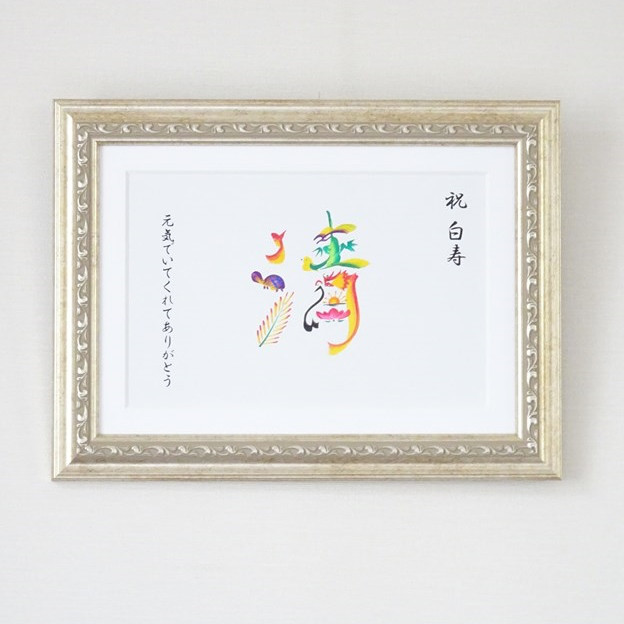 祝 白寿
清
元気でいてくれてありがとう